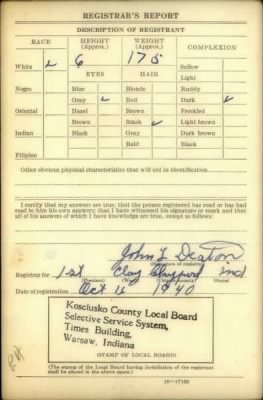 REGISTRAR'S REPORT
DESCRIPTION OF REGISTRANT
RACE
HEIGHT (Approx.)
WEIGHT (Approx.)
COMPLEXION
White ✓
6
175
Sallow
EYES
HAIR
Light
Negro
Blue
Blonde
Ruddy
Gray ✓
Red
Dark ✓
Oriental
Hazel
Brown
Freckled
Brown
Black ✓
Light brown
Indian
Black
Gray
Dark brown
Bald
Black
Filipino
Other obvious physical characteristics that will aid in identification
I certify that my answers are true; that the person registered has read or has had
read to him his own answers; that I have witnessed his signature or mark and that
all of his answers of which I have knowledge are true, except as follows:
John L Deaton
(Signature of registrar)
Registrar for 1st Clay Ind
(Precinct) (State)
Date of registration Oct 16 1940
Kosciusko County Local Board
Selective Service System,
Times Building,
Warsaw, Indiana
(STAMP OF LOCAL BOARD)
(The stamp of the Local Board having jurisdiction of the registrant
shall be placed in the above space.)